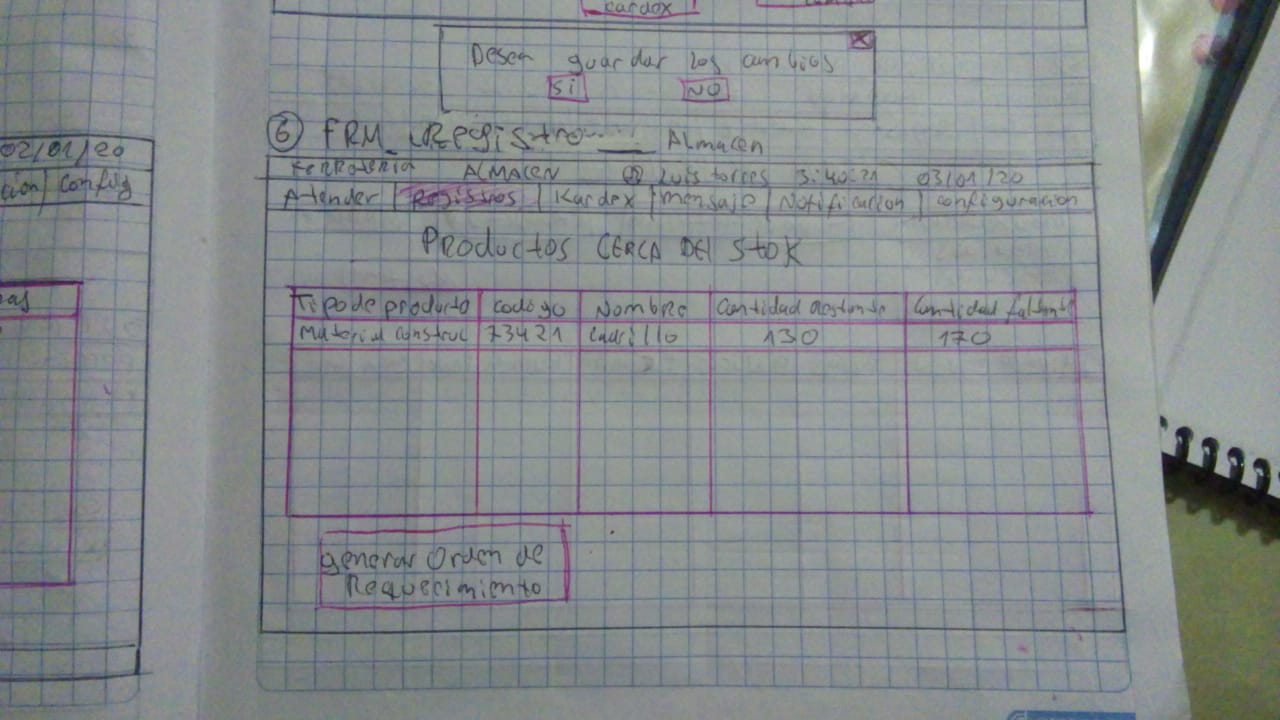 kardex
Desea guardar los cambios
Si NO
6 FRM_Registro Almacen
FERRETERIA ALMACEN Luis torres 3:40:21 03/01/20
Atender Registros Kardex mensaje Notificacion configuracion
PRoductos CERCA DEl stoK
Tipo de producto codigo Nombre Cantidad restante Cantidad faltante
Material construc 73421 Ladrillo 130 170
generar Orden de
Requerimiento
02/01/20
cion config
as